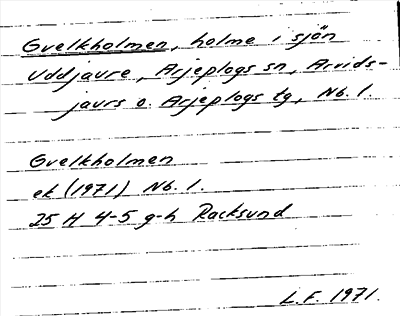 Gvelkholmen, holme i sjön
Uddjaure, Arjeplogs sn, Arvids-
jaurs o. Arjeplogs tg, Nb. l.
Gvelkholmen
ek (1971) Nb. l.
25 H 4-5 g-h Racksund
L.F. 1971.